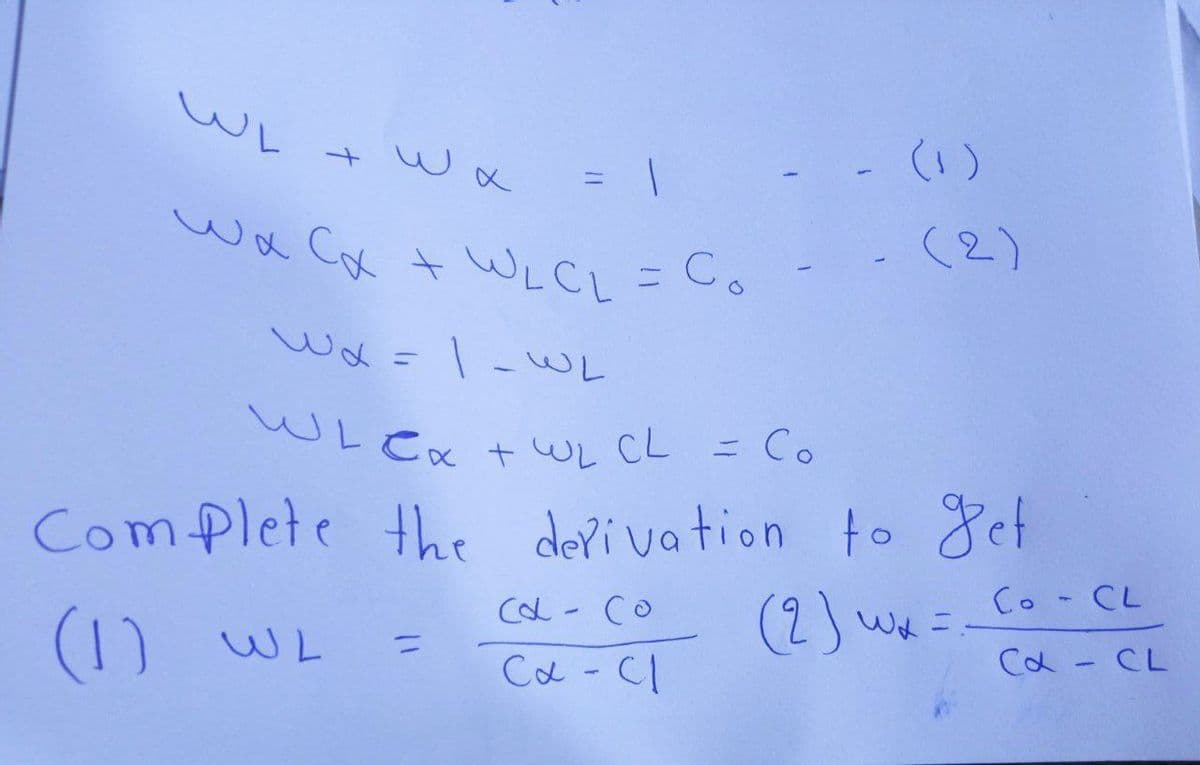 WL + Wα = 1 - - (1)
Wα Cα + WLCL = C₀ - - (2)
Wα = 1 - WL
WL Cα + WL CL = C₀
Complete the derivation to get
(1) WL = (Cα - C₀) / (Cα - Cl) (2) Wα = (C₀ - CL) / (Cα - CL)